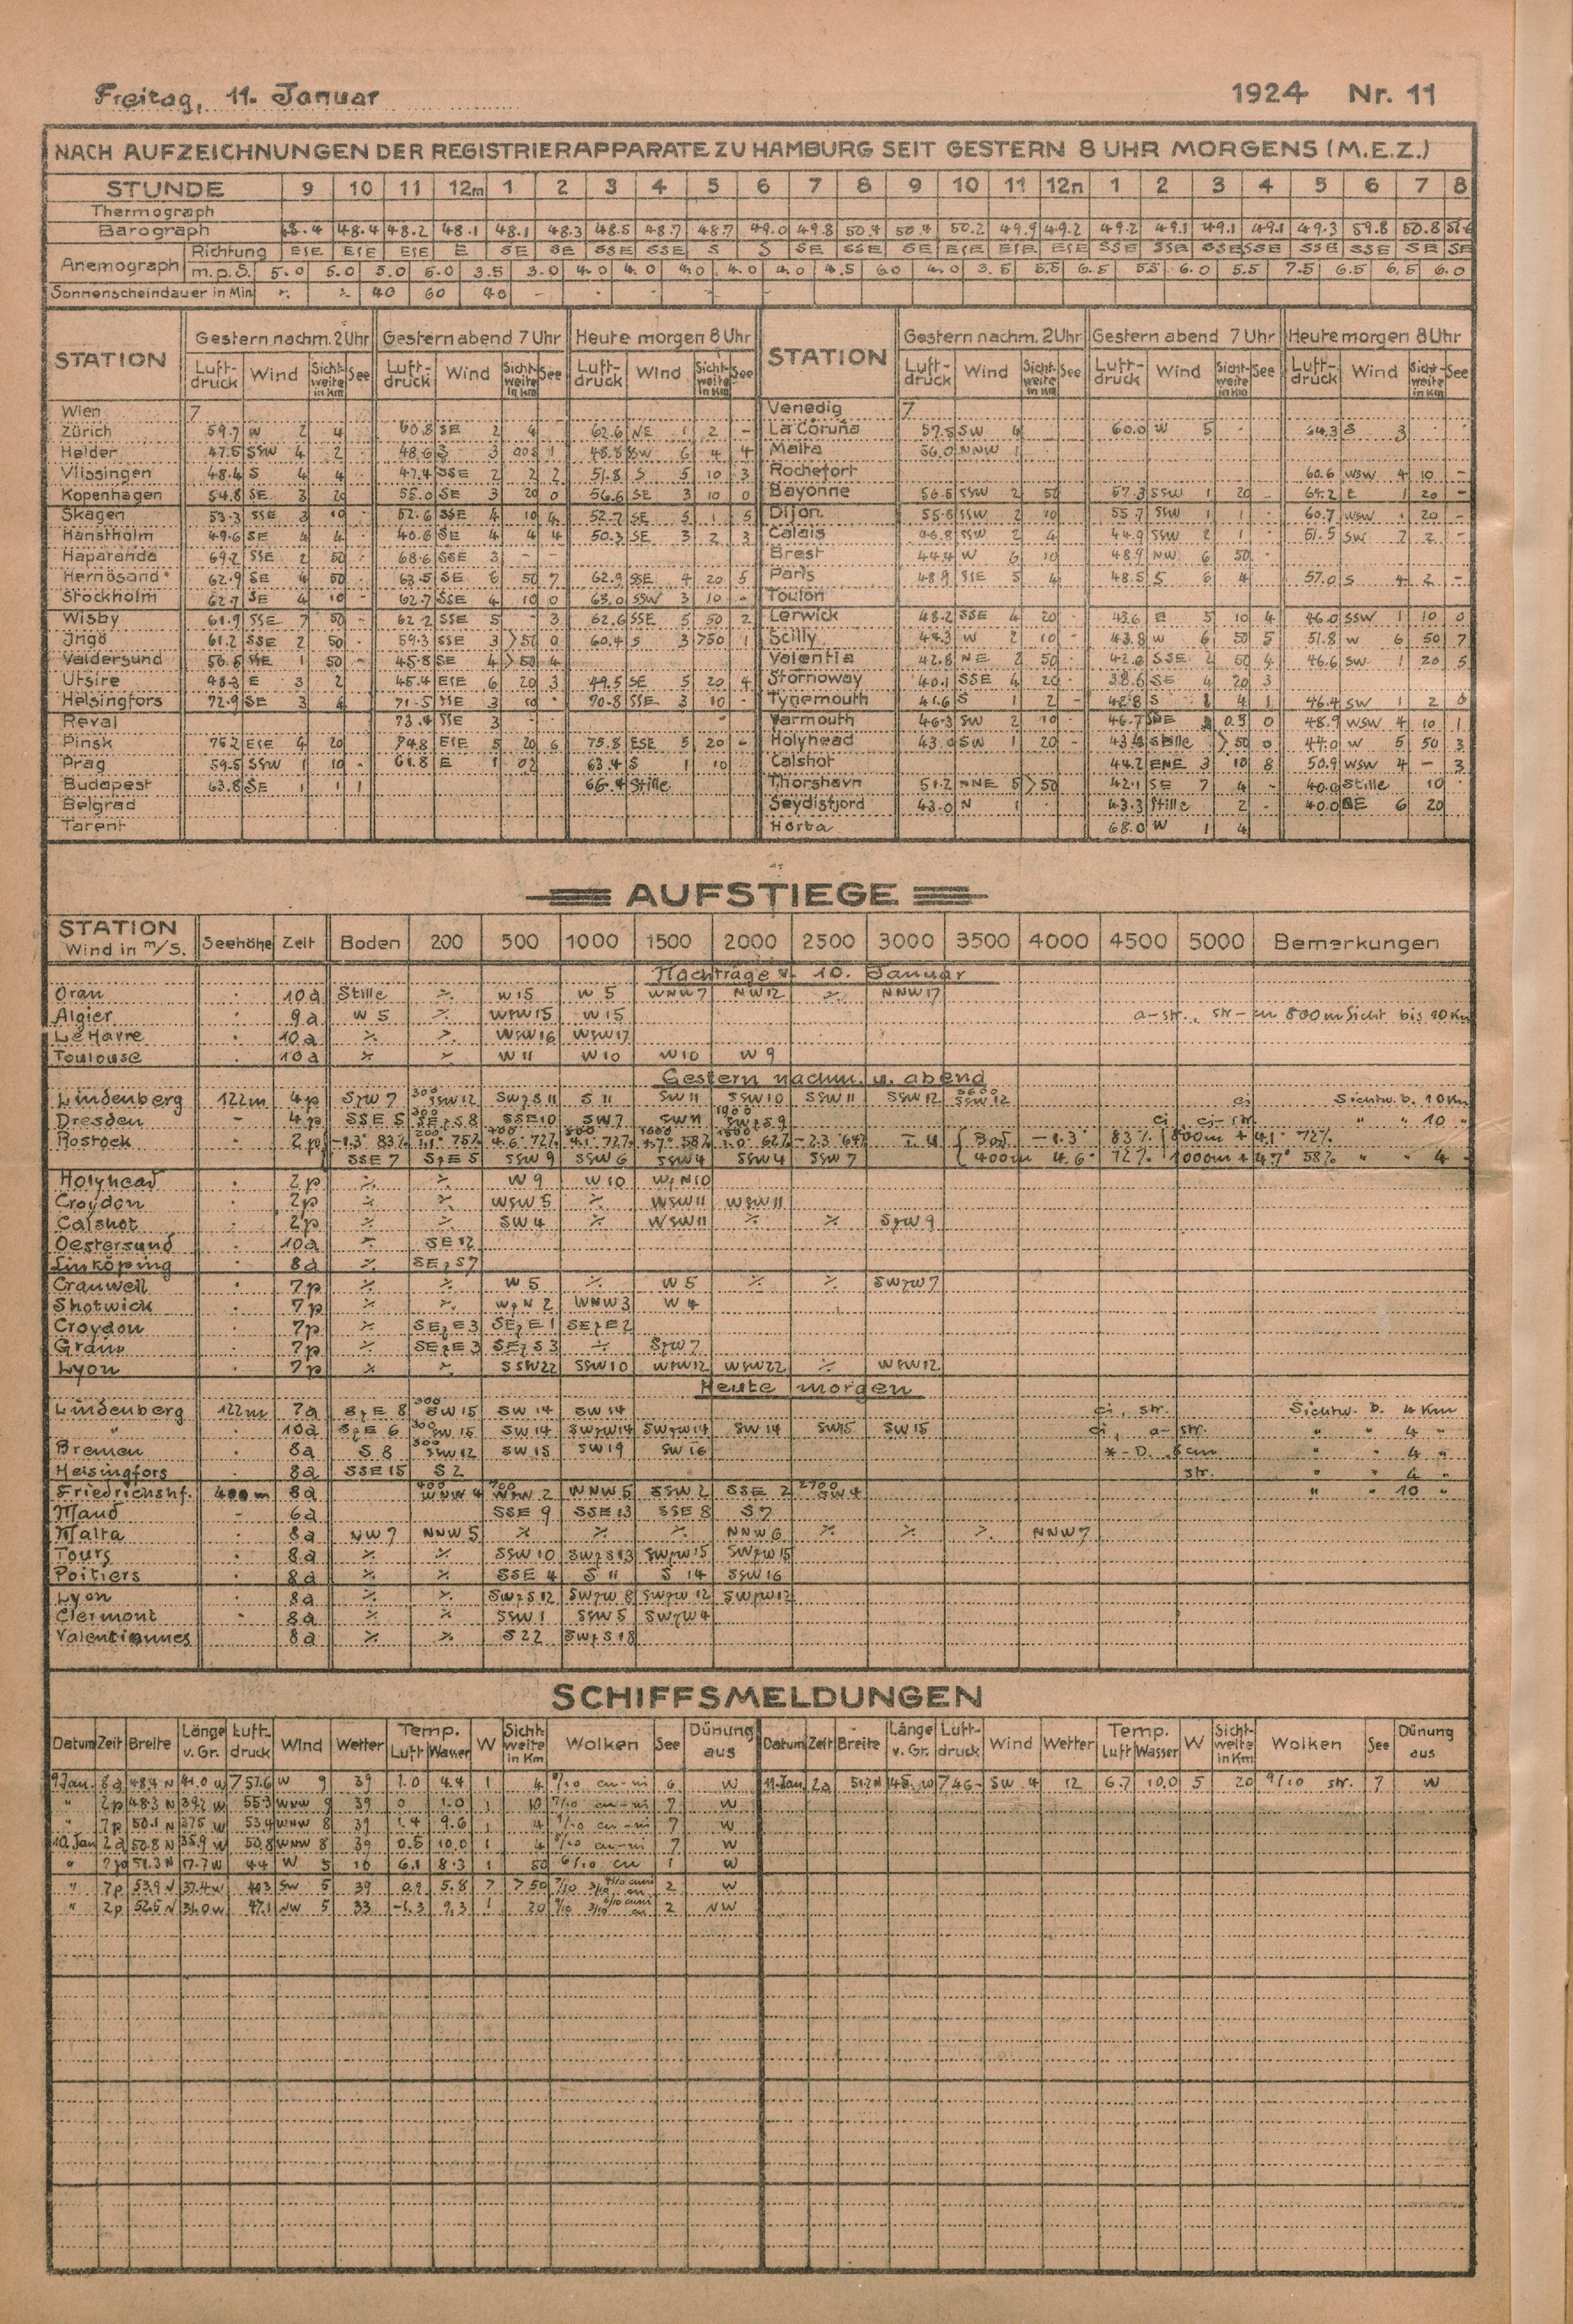 Freitag, 11. Januar 1924 Nr. 11
NACH AUFZEICHNUNGEN DER REGISTRIERAPPARATE ZU HAMBURG SEIT GESTERN 8 UHR MORGENS (M.E.Z.)
STUNDE 9 10 11 12m 1 2 3 4 5 6 7 8 9 10 11 12n 1 2 3 4 5 6 7 8
Thermograph
Barograph 48.4 48.4 48.2 48.1 48.1 48.3 48.5 48.7 48.7 49.0 49.8 50.4 50.4 50.2 49.9 49.2 49.2 49.1 49.1 49.1 49.3 59.8 50.8
Anemograph Richtung ESE ESE ESE E SE SE SSE SSE S S SE SSE SE ESE ESE ESE SSE SSE SSE SSE SSE SSE SE SE
m.p.S. 5.0 5.0 5.0 5.0 3.5 3.0 4.0 4.0 4.0 4.0 4.0 4.5 6.0 4.0 3.5 5.5 6.5 5.5 6.0 5.5 7.5 6.5 6.5 6.0
Sonnenscheindauer in Min. 40 60 40
STATION Gestern nachm. 2 Uhr Gestern abend 7 Uhr Heute morgen 8 Uhr STATION Gestern nachm. 2 Uhr Gestern abend 7 Uhr Heute morgen 8 Uhr
Luft-druck Wind Sicht-weite in Km See Luft-druck Wind Sicht-weite in Km See Luft-druck Wind Sicht-weite in Km See Luft-druck Wind Sicht-weite in Km See Luft-druck Wind Sicht-weite in Km See Luft-druck Wind Sicht-weite in Km See
Wien 7 Venedig 7
Zürich 59.7 W 2 4 60.8 SE 2 4 62.6 NE 1 2 - La Coruña 57.5 SW 4 60.0 W 5 64.3 S 3
Helder 47.5 SSW 4 2 48.6 S 3 1 48.8 SSW 6 4 4 Malta 56.0 NNW 1
Vlissingen 48.4 S 4 4 47.4 SSE 2 2 2 51.8 S 5 10 3 Rochefort 60.6 WSW 4 10 -
Kopenhagen 54.8 SE 3 20 55.0 SE 3 20 0 56.6 SE 3 10 0 Bayonne 56.5 SSW 2 50 57.3 SSW 1 20 - 64.2 E 1 20 -
Skagen 53.3 SSE 3 10 52.6 SSE 4 10 4 52.7 SE 5 1 5 Dijon 55.6 SSW 2 10 55.7 SSW 1 1 60.7 WSW 20 -
Hanstholm 49.6 SE 4 4 40.6 SE 4 4 4 50.3 SE 3 2 3 Calais 46.8 SSW 2 4 44.9 SSW 2 1 51.5 SW 2 2 -
Haparanda 69.2 SSE 2 50 68.6 SSE 3 - - Brest 44.4 W 6 10 48.9 NW 6 50
Hernösand 62.9 SE 4 50 63.5 SE 6 50 7 62.9 SSE 4 20 5 Paris 48.9 SSE 5 4 48.5 S 6 4 57.0 S 4 2 -
Stockholm 62.7 SE 4 10 - 62.7 SSE 4 10 0 63.0 SSW 3 10 - Toulon
Wisby 61.9 SSE 7 50 62.2 SSE 5 3 62.6 SSE 5 50 2 Lerwick 48.2 SSE 4 20 43.6 E 5 10 4 46.0 SSW 1 10 0
Ingö 61.2 SSE 2 50 59.3 SSE 3 >50 0 60.4 S 3 >50 1 Scilly 44.3 W 2 10 - 43.8 W 6 50 5 51.8 W 6 50 7
Valdersund 1 50 - 45.8 SE 4 >50 4 Valentia 42.8 NE 2 50 42.6 SSE 2 50 4 46.6 SW 1 20 5
Utsire 48.3 E 3 2 45.4 ESE 6 20 3 49.5 SE 5 20 4 Stornoway 40.1 SSE 4 20 38.6 SE 4 20 3
Helsingfors 72.9 SE 3 4 71.5 SSE 3 10 70.8 SSE 3 10 Tynemouth 41.6 S 1 2 - 42.8 S 4 1 46.4 SW 1 2 0
Reval 73.4 SSE 3 Yarmouth 46.3 SW 2 10 46.7 0.5 0 48.9 WSW 4 10 1
Pinsk 76.2 ESE 4 20 74.8 ESE 5 20 6 75.8 ESE 5 20 - Holyhead 43.0 SW 1 20 - Stille >50 0 44.0 W 5 50 3
Prag 59.5 SSW 1 10 61.8 E 1 02 63.4 S 1 10 Calshot 44.2 ENE 3 10 8 50.9 WSW 4 - 3
Budapest 63.8 SE 1 1 66.4 Stille Thorshavn 51.2 NNE 5 >50 42.1 SE 7 4 - 40.0 Stille 10
Belgrad Seydisfjord 43.0 N 1 43.3 Stille 2 - 40.0 6 20
Tarent Horta 68.0 W 1 4
AUFSTIEGE
STATION Wind in m/S. Seehöhe Zeit Boden 200 500 1000 1500 2000 2500 3000 3500 4000 4500 5000 Bemerkungen
Nachträge v. 10. Januar
Oran 10a Stille W 15 W 5 WNW 7 NW 12 NNW 17
Algier 9a W 5 WSW 15 W 15 a-str., str-cu 800m Sicht bis 10 Km
Le Havre 10a WSW 16 WSW 17
Toulouse 10a W 11 W 10 W 10 W 9
Gestern nachm. u. abend
Lindenberg 122m 4p SzW 7 300 SSW 12 SWzS 11 S 11 SW 11 SSW 10 SSW 11 SSW 12 SSW 12 ci Sichtw. b. 10 Km
Dresden - 4p SSE 5 300 SEzS 8 SSE 10 SW 7 SW 11 1900 SWzS 9 ci, ci-str " " 10 "
Rostock 2p -1.3° 83% 75% 4.6° 72% 4.1° 72% 4.7° 58% 1.0° 62% -2.3° 64% { Bod -1.3° 83% 800m + 4.1° 72%
SSE 7 SzE 5 SSW 9 SSW 6 SSW 4 SSW 4 SSW 7 400m 4.6° 72% 1000m + 4.7° 58% " " 4 "
Holyhead 2p W 9 W 10 WzN 10
Croydon 2p WSW 5 WSW 11 WSW 11
Calshot 2p SW 4 WSW 11 SzW 9
Oestersund 10a SE 12
Linköping 8a SEzS 7
Cranwell 7p W 5 W 5 SWzW 7
Shotwick 7p WzN 2 WNW 3 W 4
Croydon 7p SEzE 3 SEzE 1 SEzE 2
Grain 7p SEzE 3 SEzS 3 SzW 7
Lyon 7p SSW 22 SSW 10 WSW 12 WSW 22 WSW 12
Heute morgen
Lindenberg 122m 7a SzE 8 300 SW 15 SW 14 SW 14 ci, str. Sichtw. b. 4 Km
" 10a SzE 6 300 SW 15 SW 14 SWzW 14 SWzW 14 SW 14 SW 15 SW 15 ci, a-str. " " 4 "
Bremen 8a S 8 300 SSW 12 SW 15 SW 19 SW 16 " " 4 "
Helsingfors 8a SSE 15 S 2 str. " " 4 "
Friedrichshf. 400m 8a 400 WNW 4 700 WSW 2 WNW 5 SSW 2 SSE 2 2700 SW 4 " " 10 "
Maud - 6a SSE 9 SSE 13 SSE 8 S 7
Malta 8a NW 7 NNW 5 NNW 6 NNW 7
Tours 8a SSW 10 SWzS 13 SWzW 15 SWzW 15
Poitiers 8a SSE 4 S 11 S 14 SSW 16
Lyon 8a SWzS 12 SWzW 8 SWzW 12 SWzW 12
Clermont 8a SSW 1 SSW 5 SWzW 4
Valentiennes 8a S 22 SWzS 18
SCHIFFSMELDUNGEN
Datum Zeit Breite Länge v. Gr. Luft-druck Wind Wetter Temp. Luft Wasser W Sicht-weite in Km Wolken See Dünung aus Datum Zeit Breite Länge v. Gr. Luft-druck Wind Wetter Temp. Luft Wasser W Sicht-weite in Km Wolken See Dünung aus
9 Jan. 8a 48.4 N 41.0 W 757.6 W 9 39 1.0 4.4 1 4 9/10 cu-ni 6 W 11 Jan. 2a 51.2 N 45. W 746- SW 4 12 6.7 10.0 5 20 9/10 str. 7 W
" 2p 48.3 N 39.2 W 55.3 WNW 9 39 0 1.0 1 10 9/10 cu-ni 7 W
" 7p 50.1 N 37.5 W 53.4 WNW 8 39 1.4 9.6 1 4 9/10 cu-ni 7 W
10. Jan 2a 50.8 N 35.9 W 50.8 WNW 8 39 0.5 10.0 1 4 cu-ni 7 W
" 2p 51.3 N 17.7 W 44 W 5 16 6.1 8.3 1 50 6/10 cu 1 W
" 7p 53.9 N 37.4 W 40.3 SW 5 39 0.9 5.8 7 >50 7/10 3/10 cu 2 W
" 2p 52.5 N 31.0 W 47.1 NW 5 33 -1.3 9.3 1 20 9/10 3/10 cu 2 NW